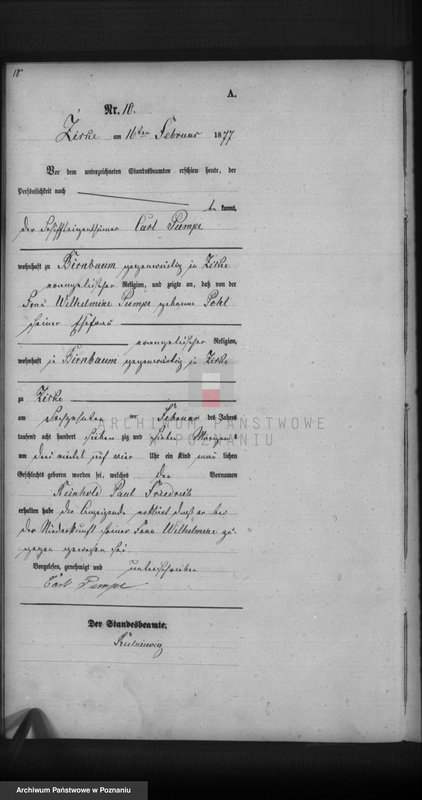 10
A.
Nr. 10.
Zirke am 16ten Februar 1877
Vor dem unterzeichneten Standesbeamten erschien heute, der
Persönlichkeit nach
be kannt,
der Schiffseigenthümer Carl Pumpe
wohnhaft zu Birnbaum gegenwärtig in Zirke
evangelischer Religion, und zeigte an, daß von der
Frau Wilhelmine Pumpe geborne Pohl
seiner Ehefrau
evangelischer Religion,
wohnhaft in Birnbaum gegenwärtig in Zirke
zu Zirke
am Februar des Jahres
tausend acht hundert sieben zig und sieben Morgens
um drei viertel auf vier Uhr ein Kind männ lichen
Geschlechts geboren worden sei, welches den Vornamen
Reinhold Paul Friedrich
erhalten habe der Anzeigende erklärt daß er bei
der Niederkunft seiner Frau Wilhelmine zu-
gegen gewesen sei.
Vorgelesen, genehmigt und unterschrieben
Carl Pumpe
Der Standesbeamte.
ARCHIWUM PAŃSTWOWE
W POZNANIU
Archiwum Państwowe w Poznaniu